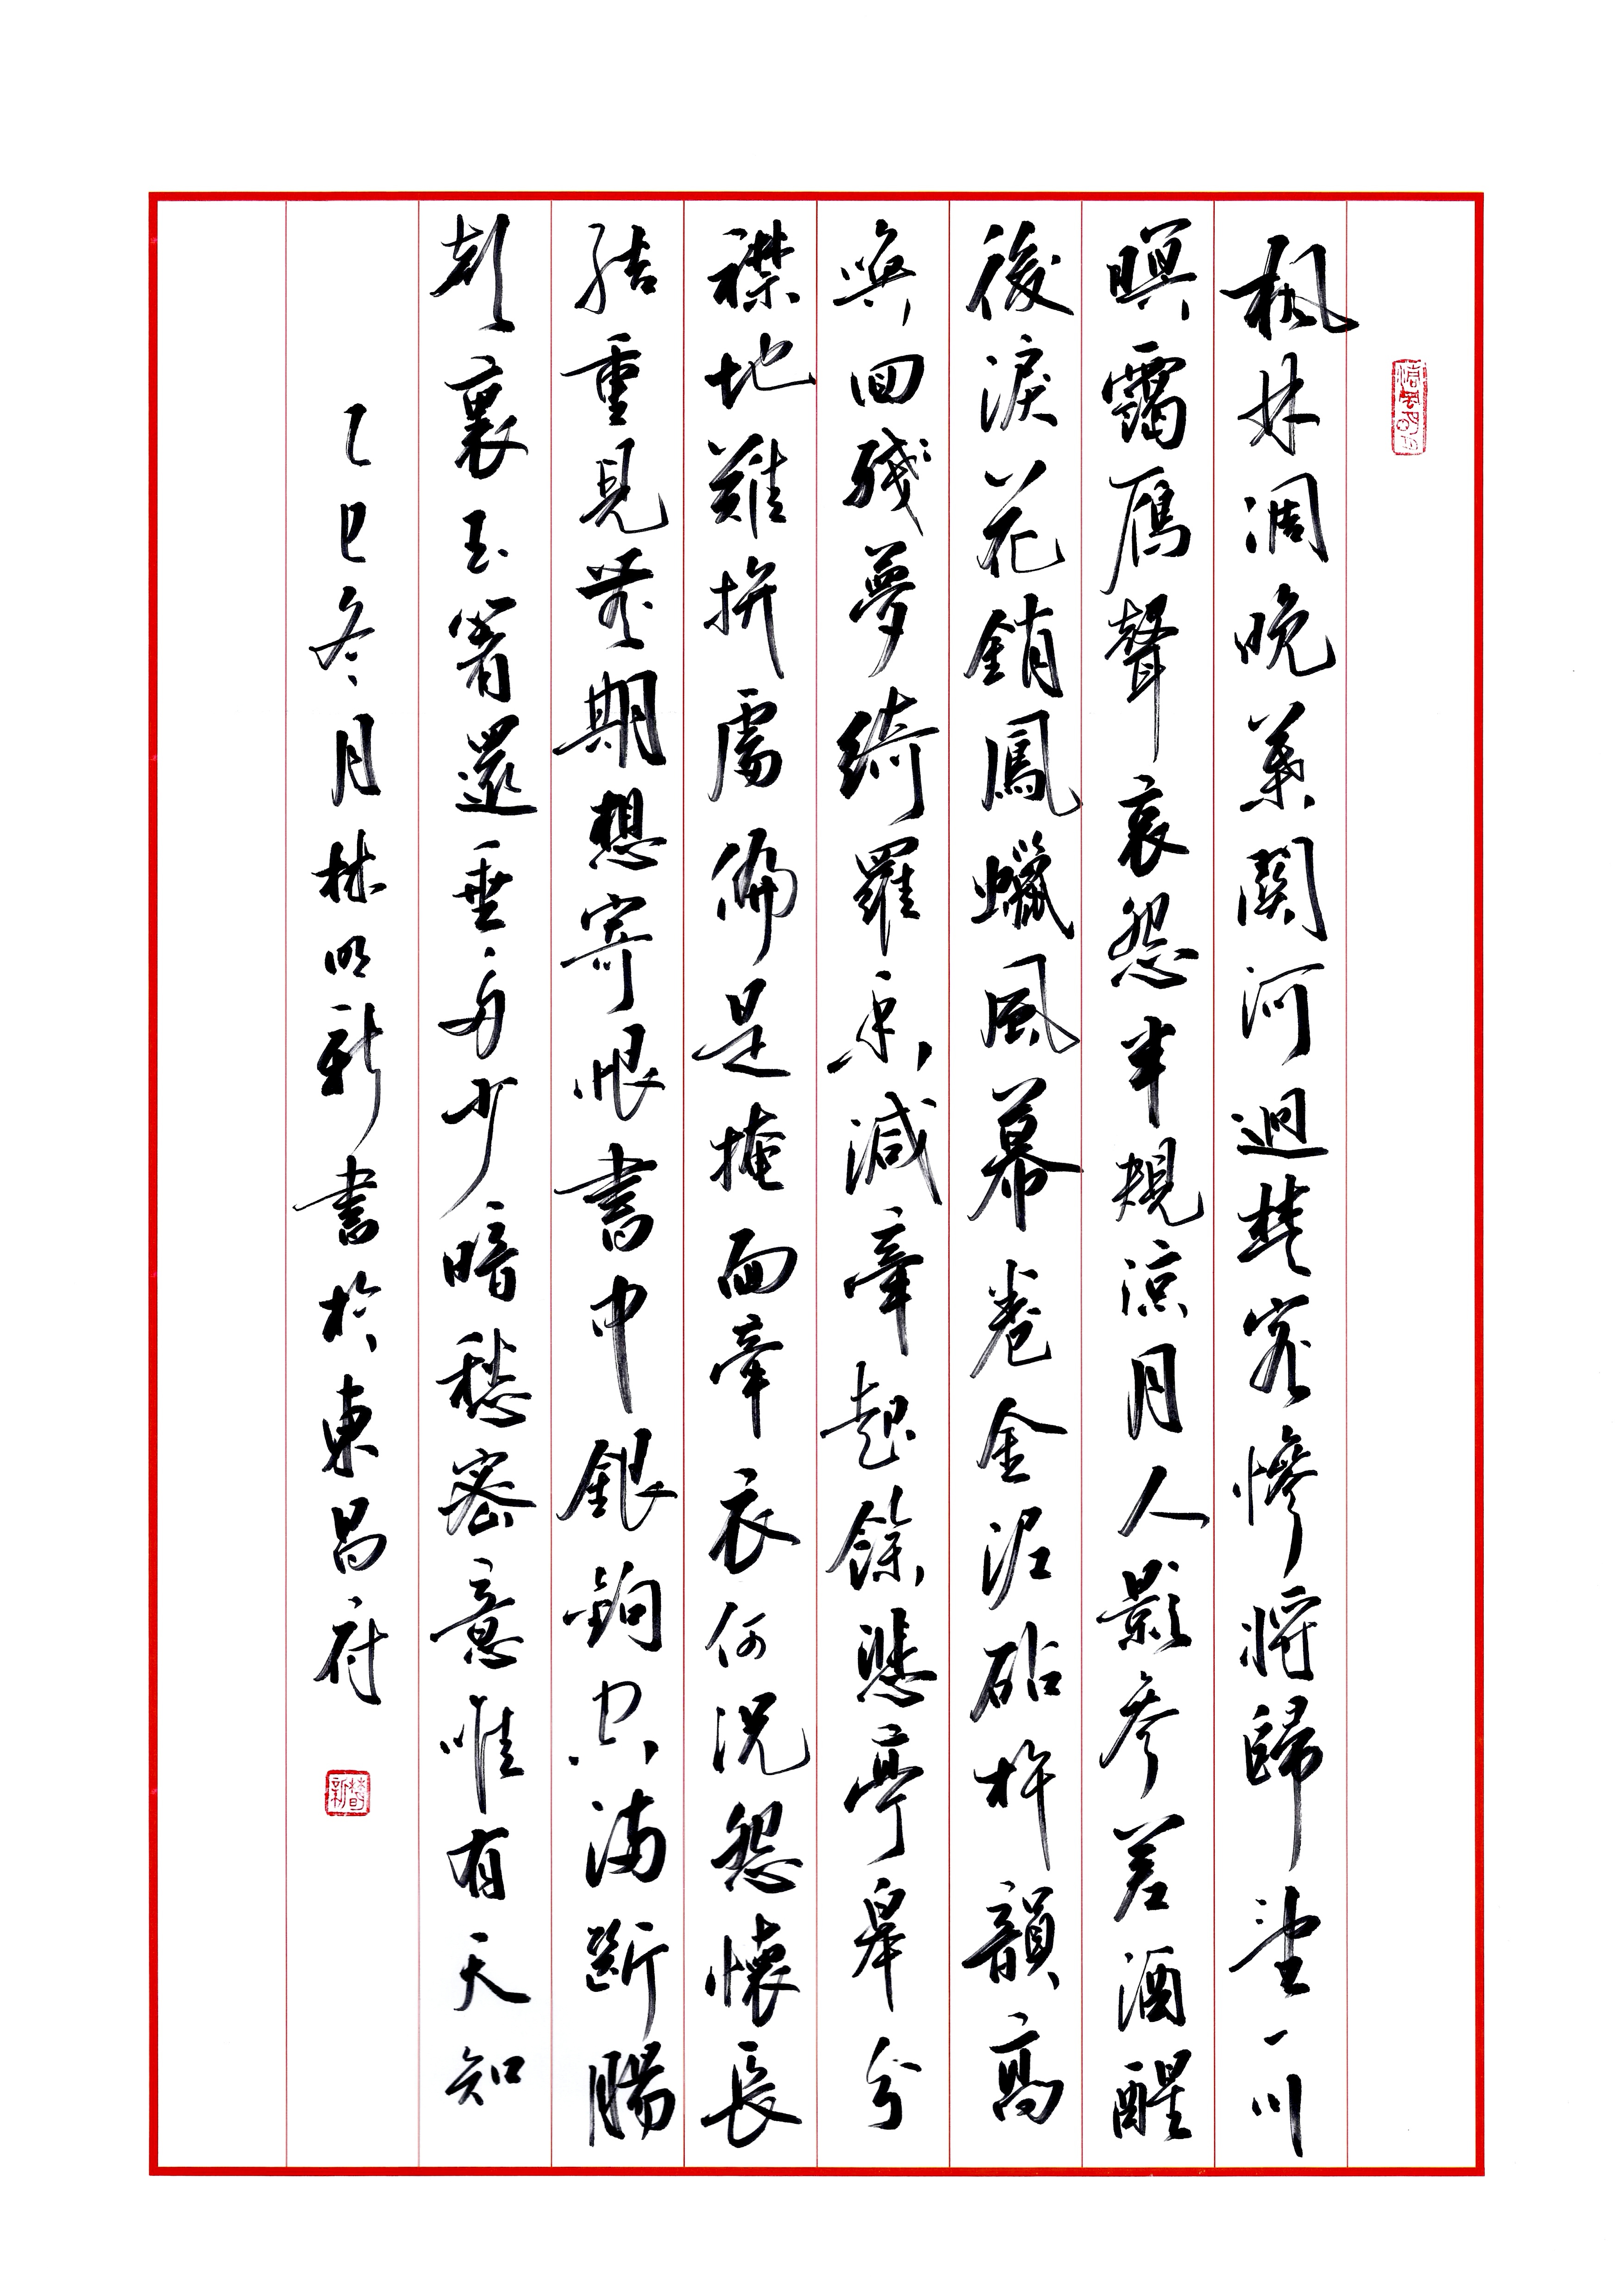 楓林凋晚葉關河迥楚客慘將歸望一川
暝靄鴈聲哀怨半規涼月人影參差酒醒
後淚花銷鳳蠟風幕卷金泥砧杵韻高
喚回殘夢綺羅香減牽起餘悲亭皋分
襟地難拚處偏是掩面牽衣何況怨懷長
結重見無期想寄恨書中銀鉤空滿斷腸
聲裏玉箸還垂多少暗愁密意唯有天知
乙巳冬月林明新書於東昌府